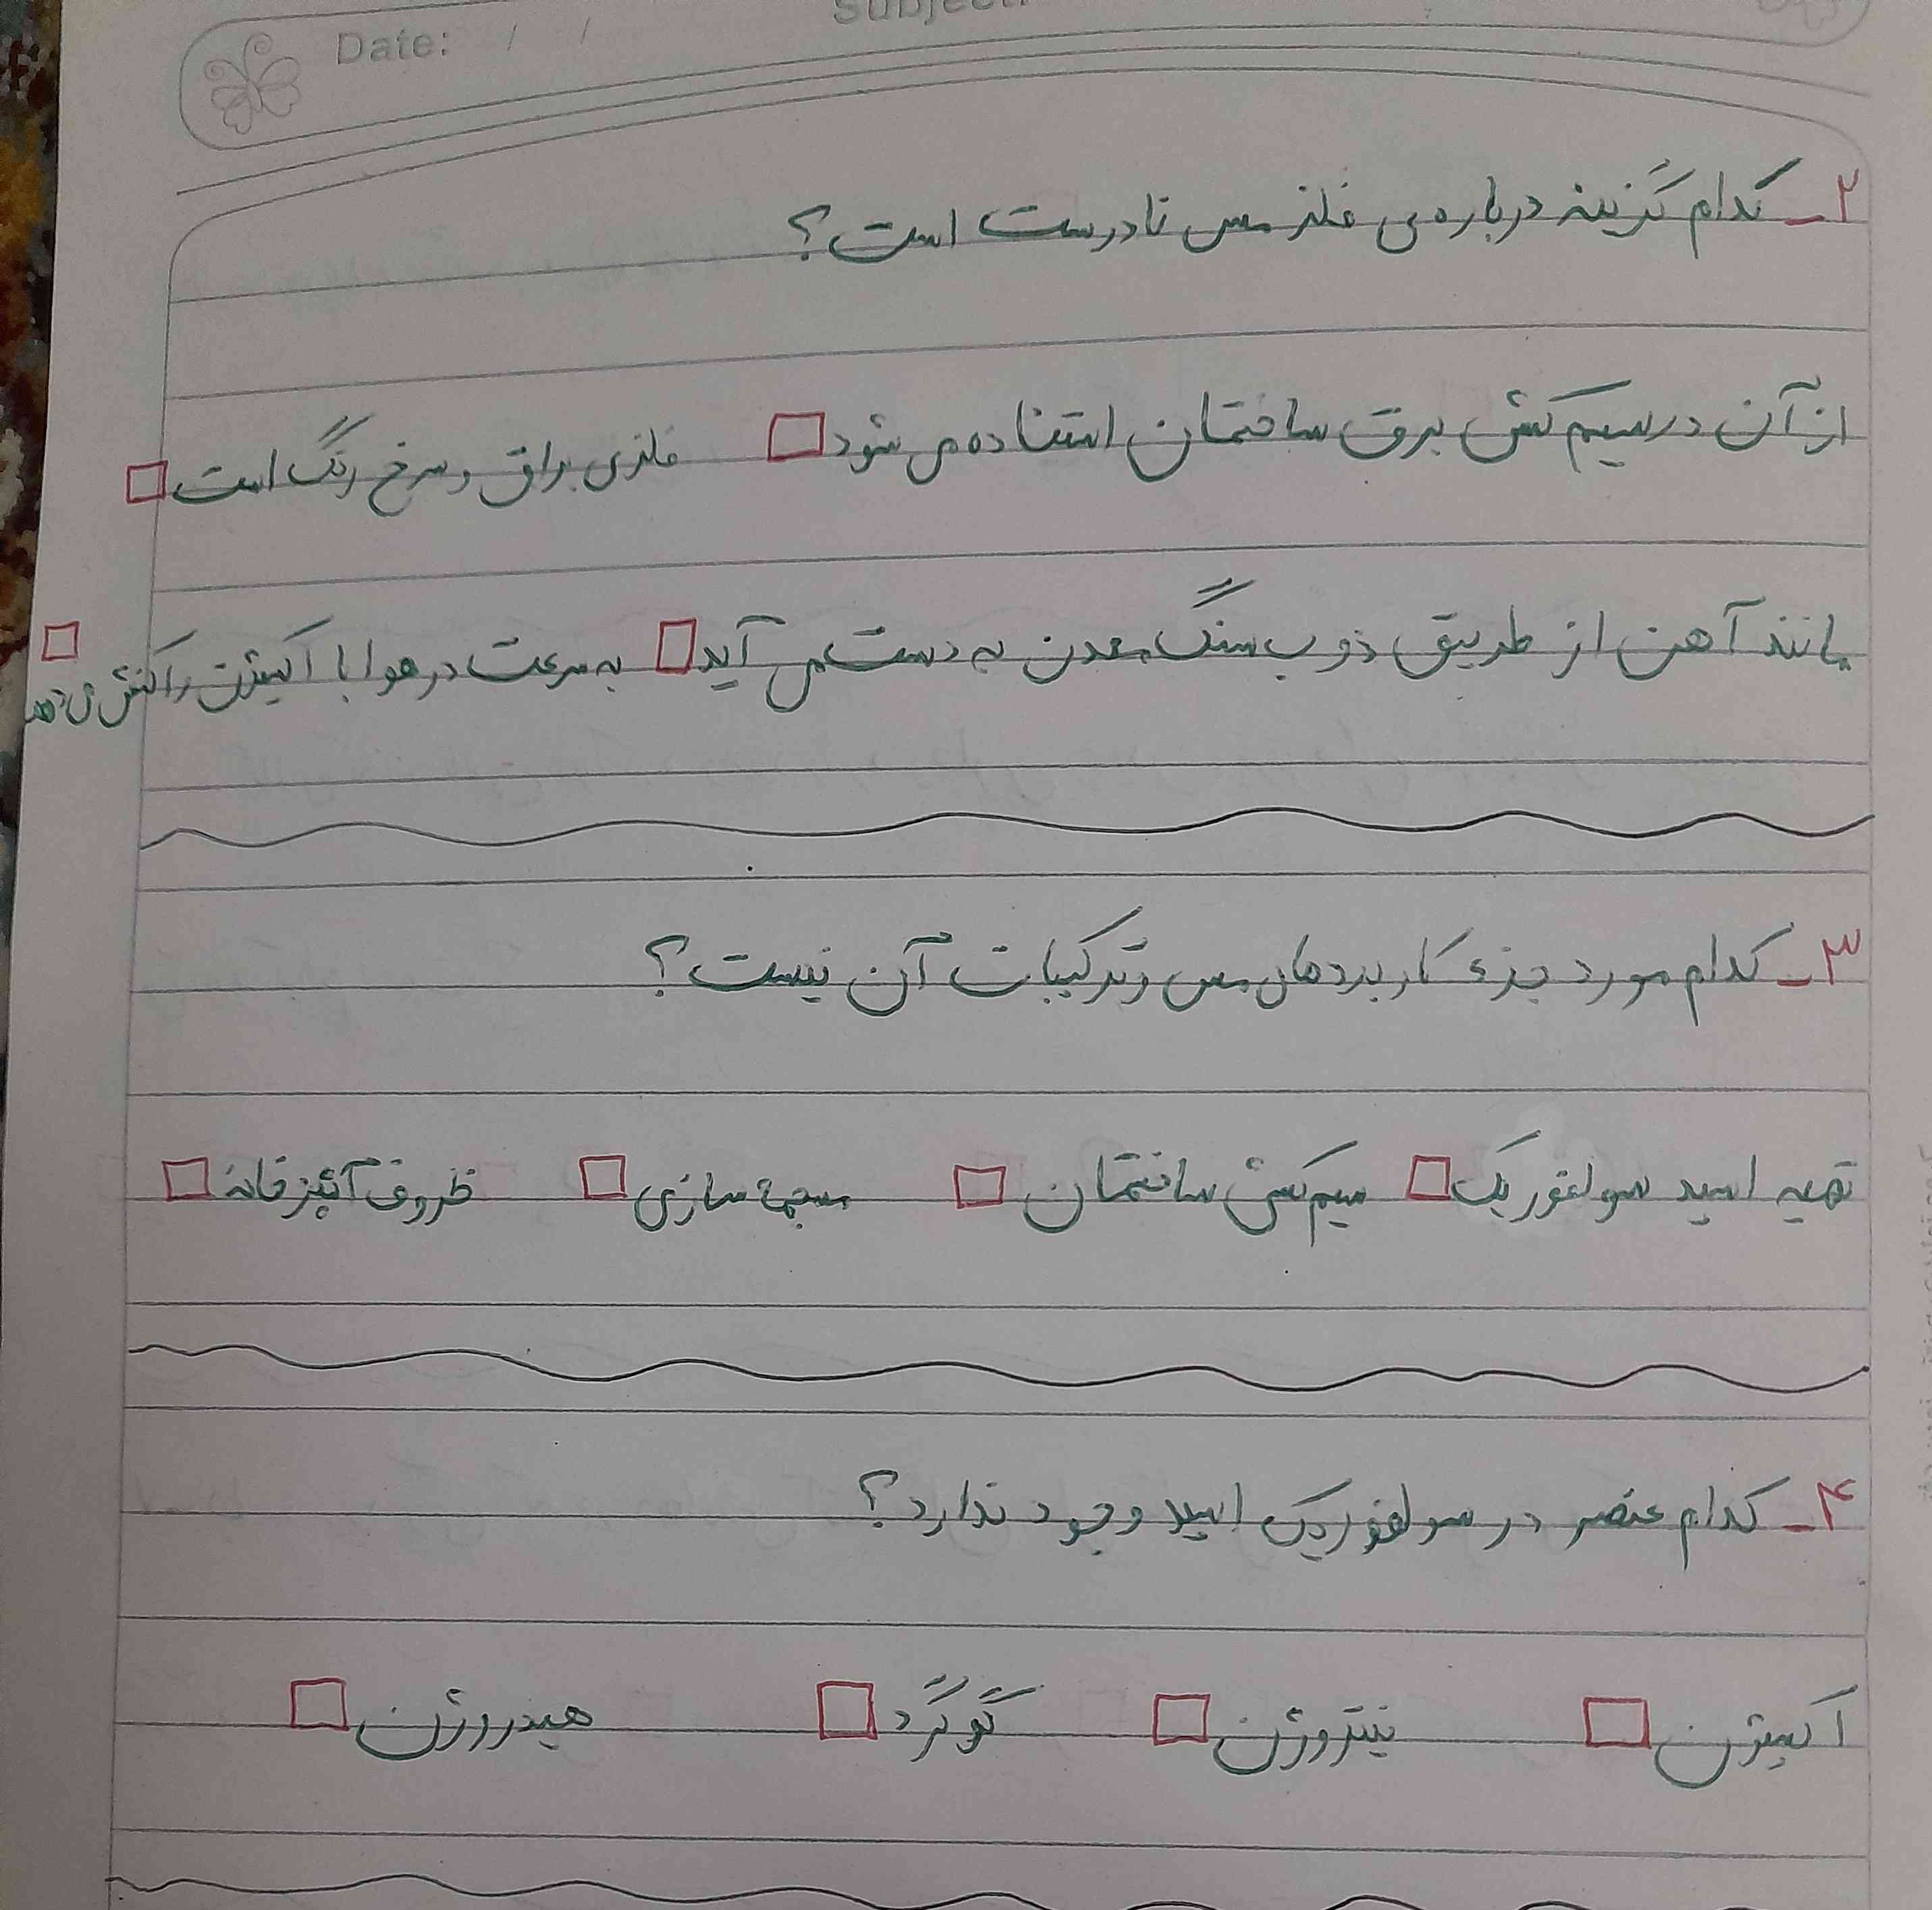 Date: / / Subject:
۲_ کدام گزینه درباره‌ی فلز مس نادرست است؟
از آن در سیم کشی برق ساختمان استفاده می شود □ فلزی براق و سرخ رنگ است □
مانند آهن از طریق ذوب سنگ معدن به دست می آید □ به سرعت در هوا با اکسیژن واکنش می دهد □
۳_ کدام مورد جزء کاربردهای مس و ترکیبات آن نیست؟
تهیه اسید سولفوریک □ سیم کشی ساختمان □ مجسمه سازی □ ظروف آشپزخانه □
۴_ کدام عنصر در سولفوریک اسید وجود ندارد؟
اکسیژن □ نیتروژن □ گوگرد □ هیدروژن □